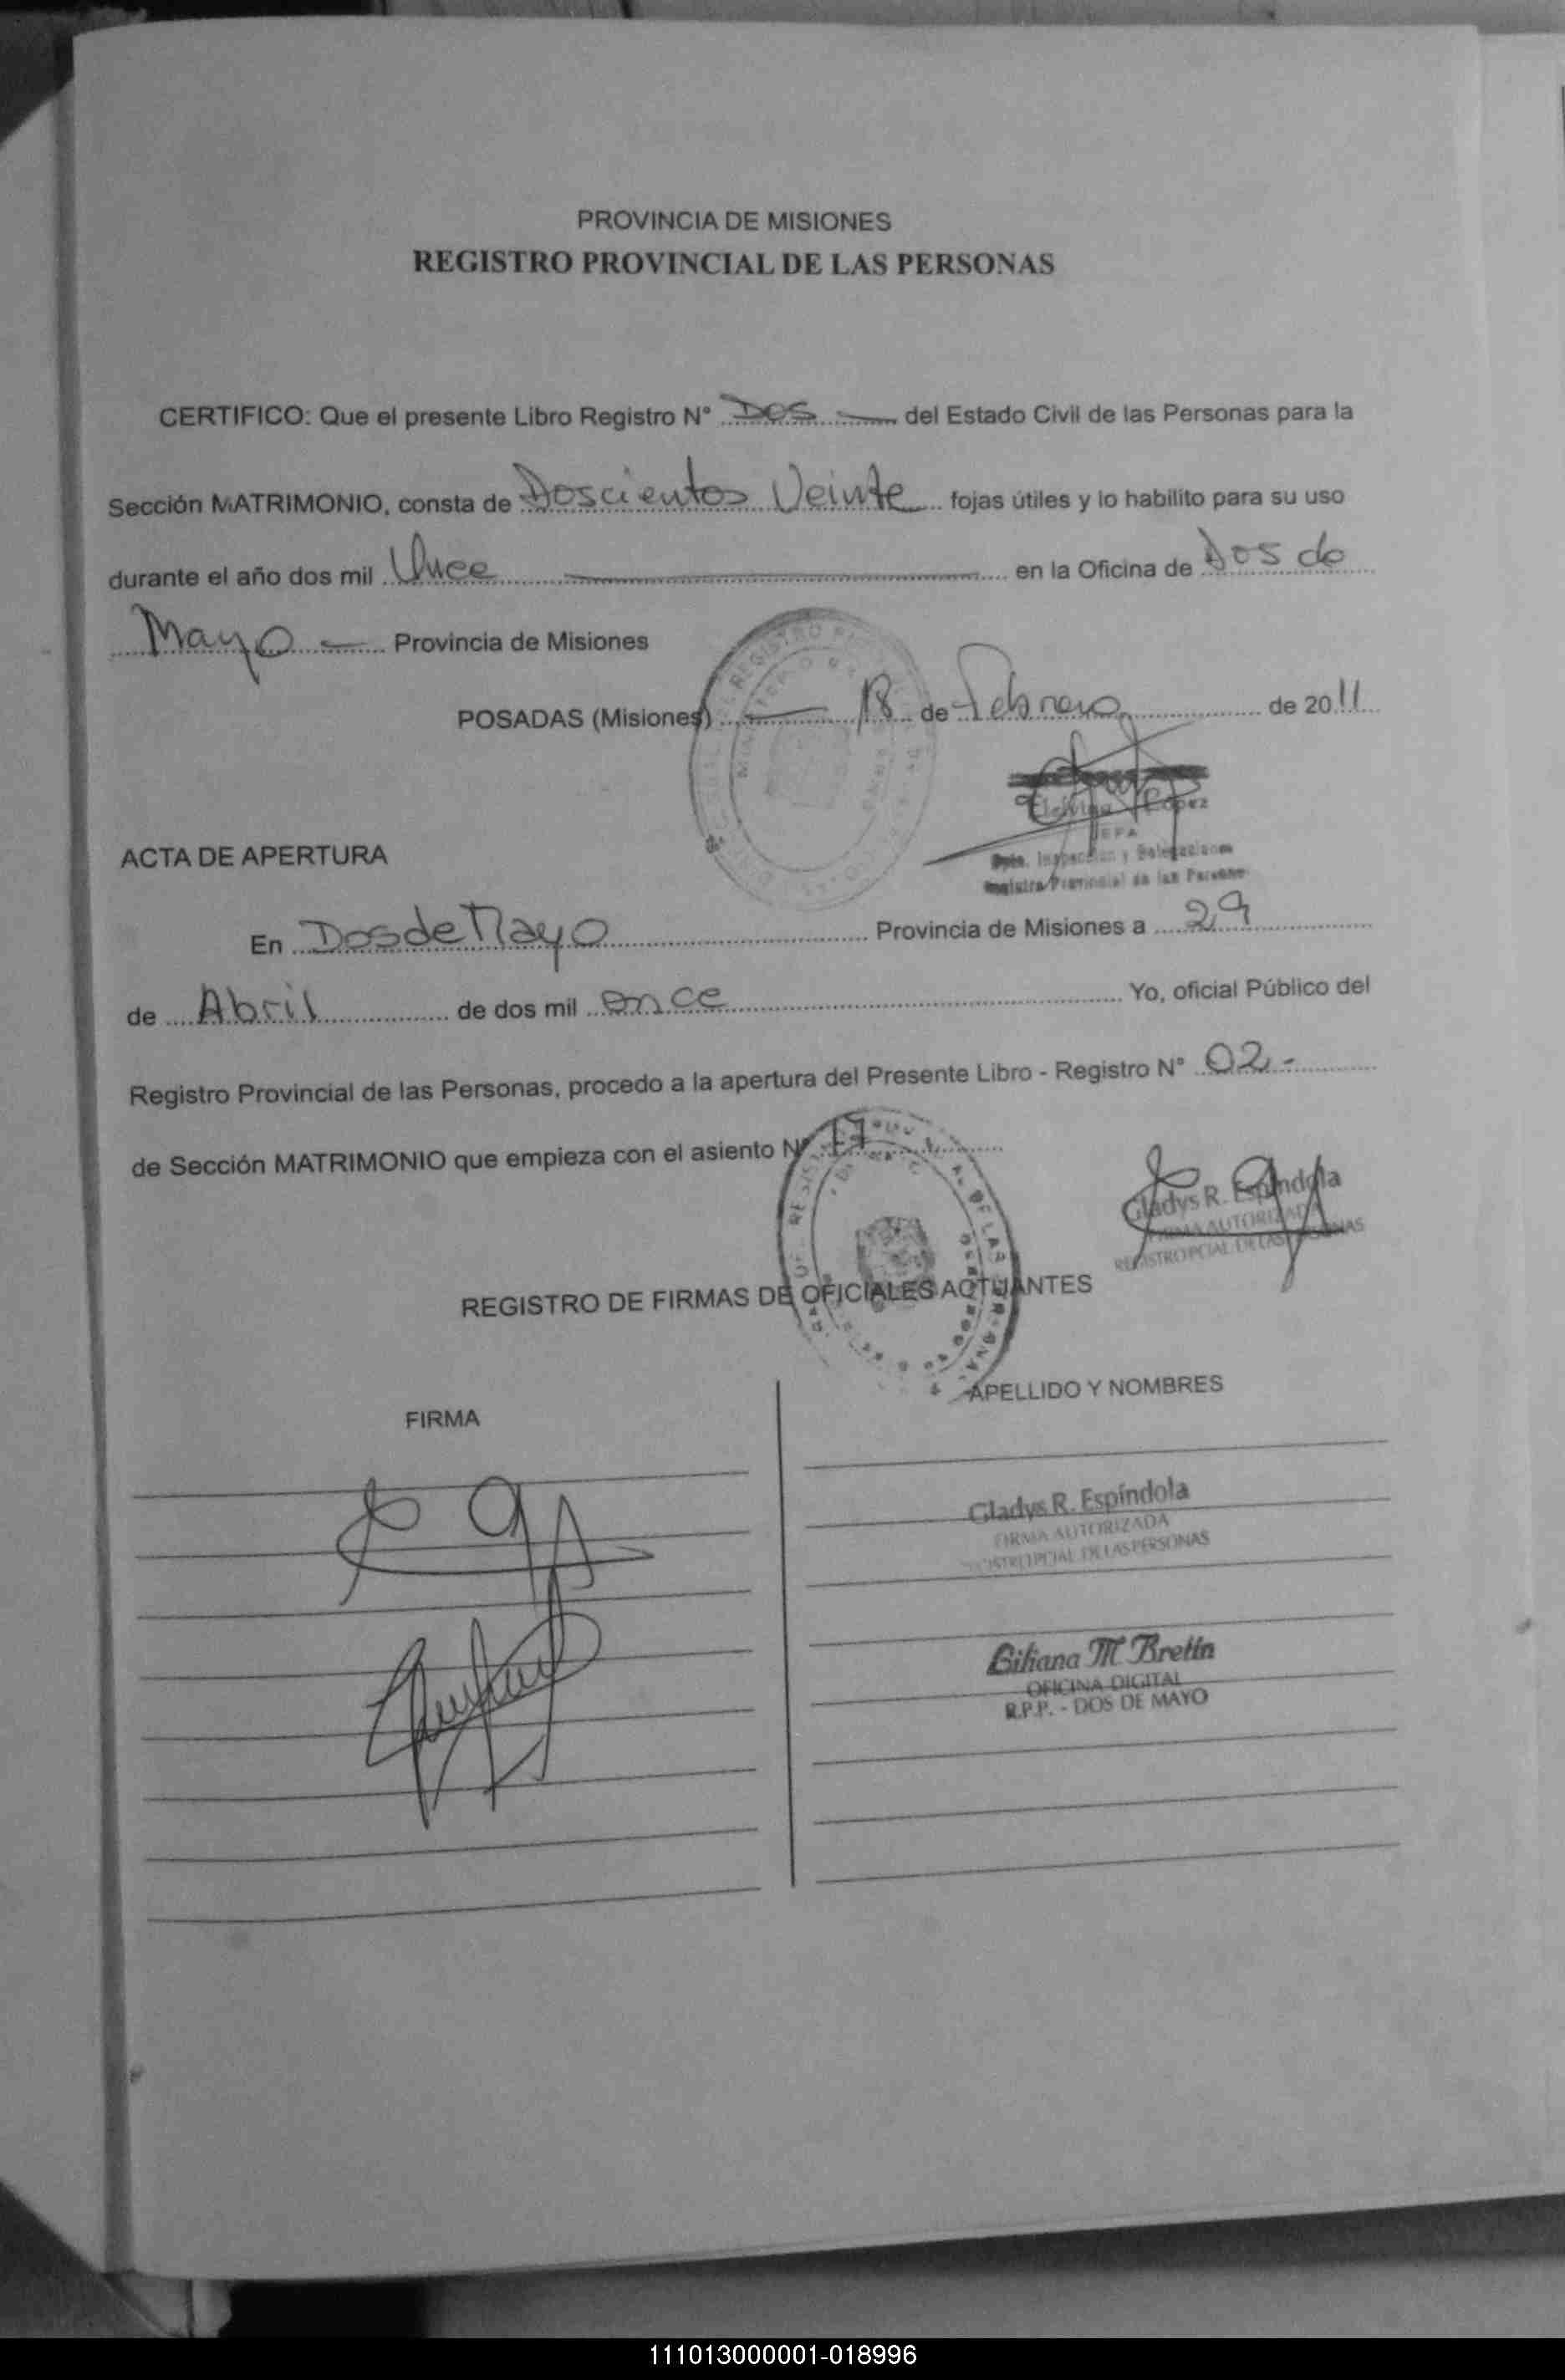 PROVINCIA DE MISIONES
REGISTRO PROVINCIAL DE LAS PERSONAS
CERTIFICO: Que el presente Libro Registro N° Dos del Estado Civil de las Personas para la
Sección MATRIMONIO, consta de Doscientos Veinte fojas útiles y lo habilito para su uso
durante el año dos mil Once en la Oficina de Dos de
Mayo Provincia de Misiones
POSADAS (Misiones) 18 de Febrero de 2011
López
Dpto. Inspección y Delegaciones
Registro Provincial de las Personas
ACTA DE APERTURA
En Dos de Mayo Provincia de Misiones a 29
de Abril de dos mil once Yo, oficial Público del
Registro Provincial de las Personas, procedo a la apertura del Presente Libro - Registro N° 02 -
de Sección MATRIMONIO que empieza con el asiento N° 17
Gladys R. Espíndola
FIRMA AUTORIZADA
REGISTRO PCIAL. DE LAS PERSONAS
REGISTRO DE FIRMAS DE OFICIALES ACTUANTES
FIRMA APELLIDO Y NOMBRES
Gladys R. Espíndola
FIRMA AUTORIZADA
REGISTRO PCIAL. DE LAS PERSONAS
Liliana M Bretin
OFICINA DIGITAL
R.P.P. - DOS DE MAYO
111013000001-018996